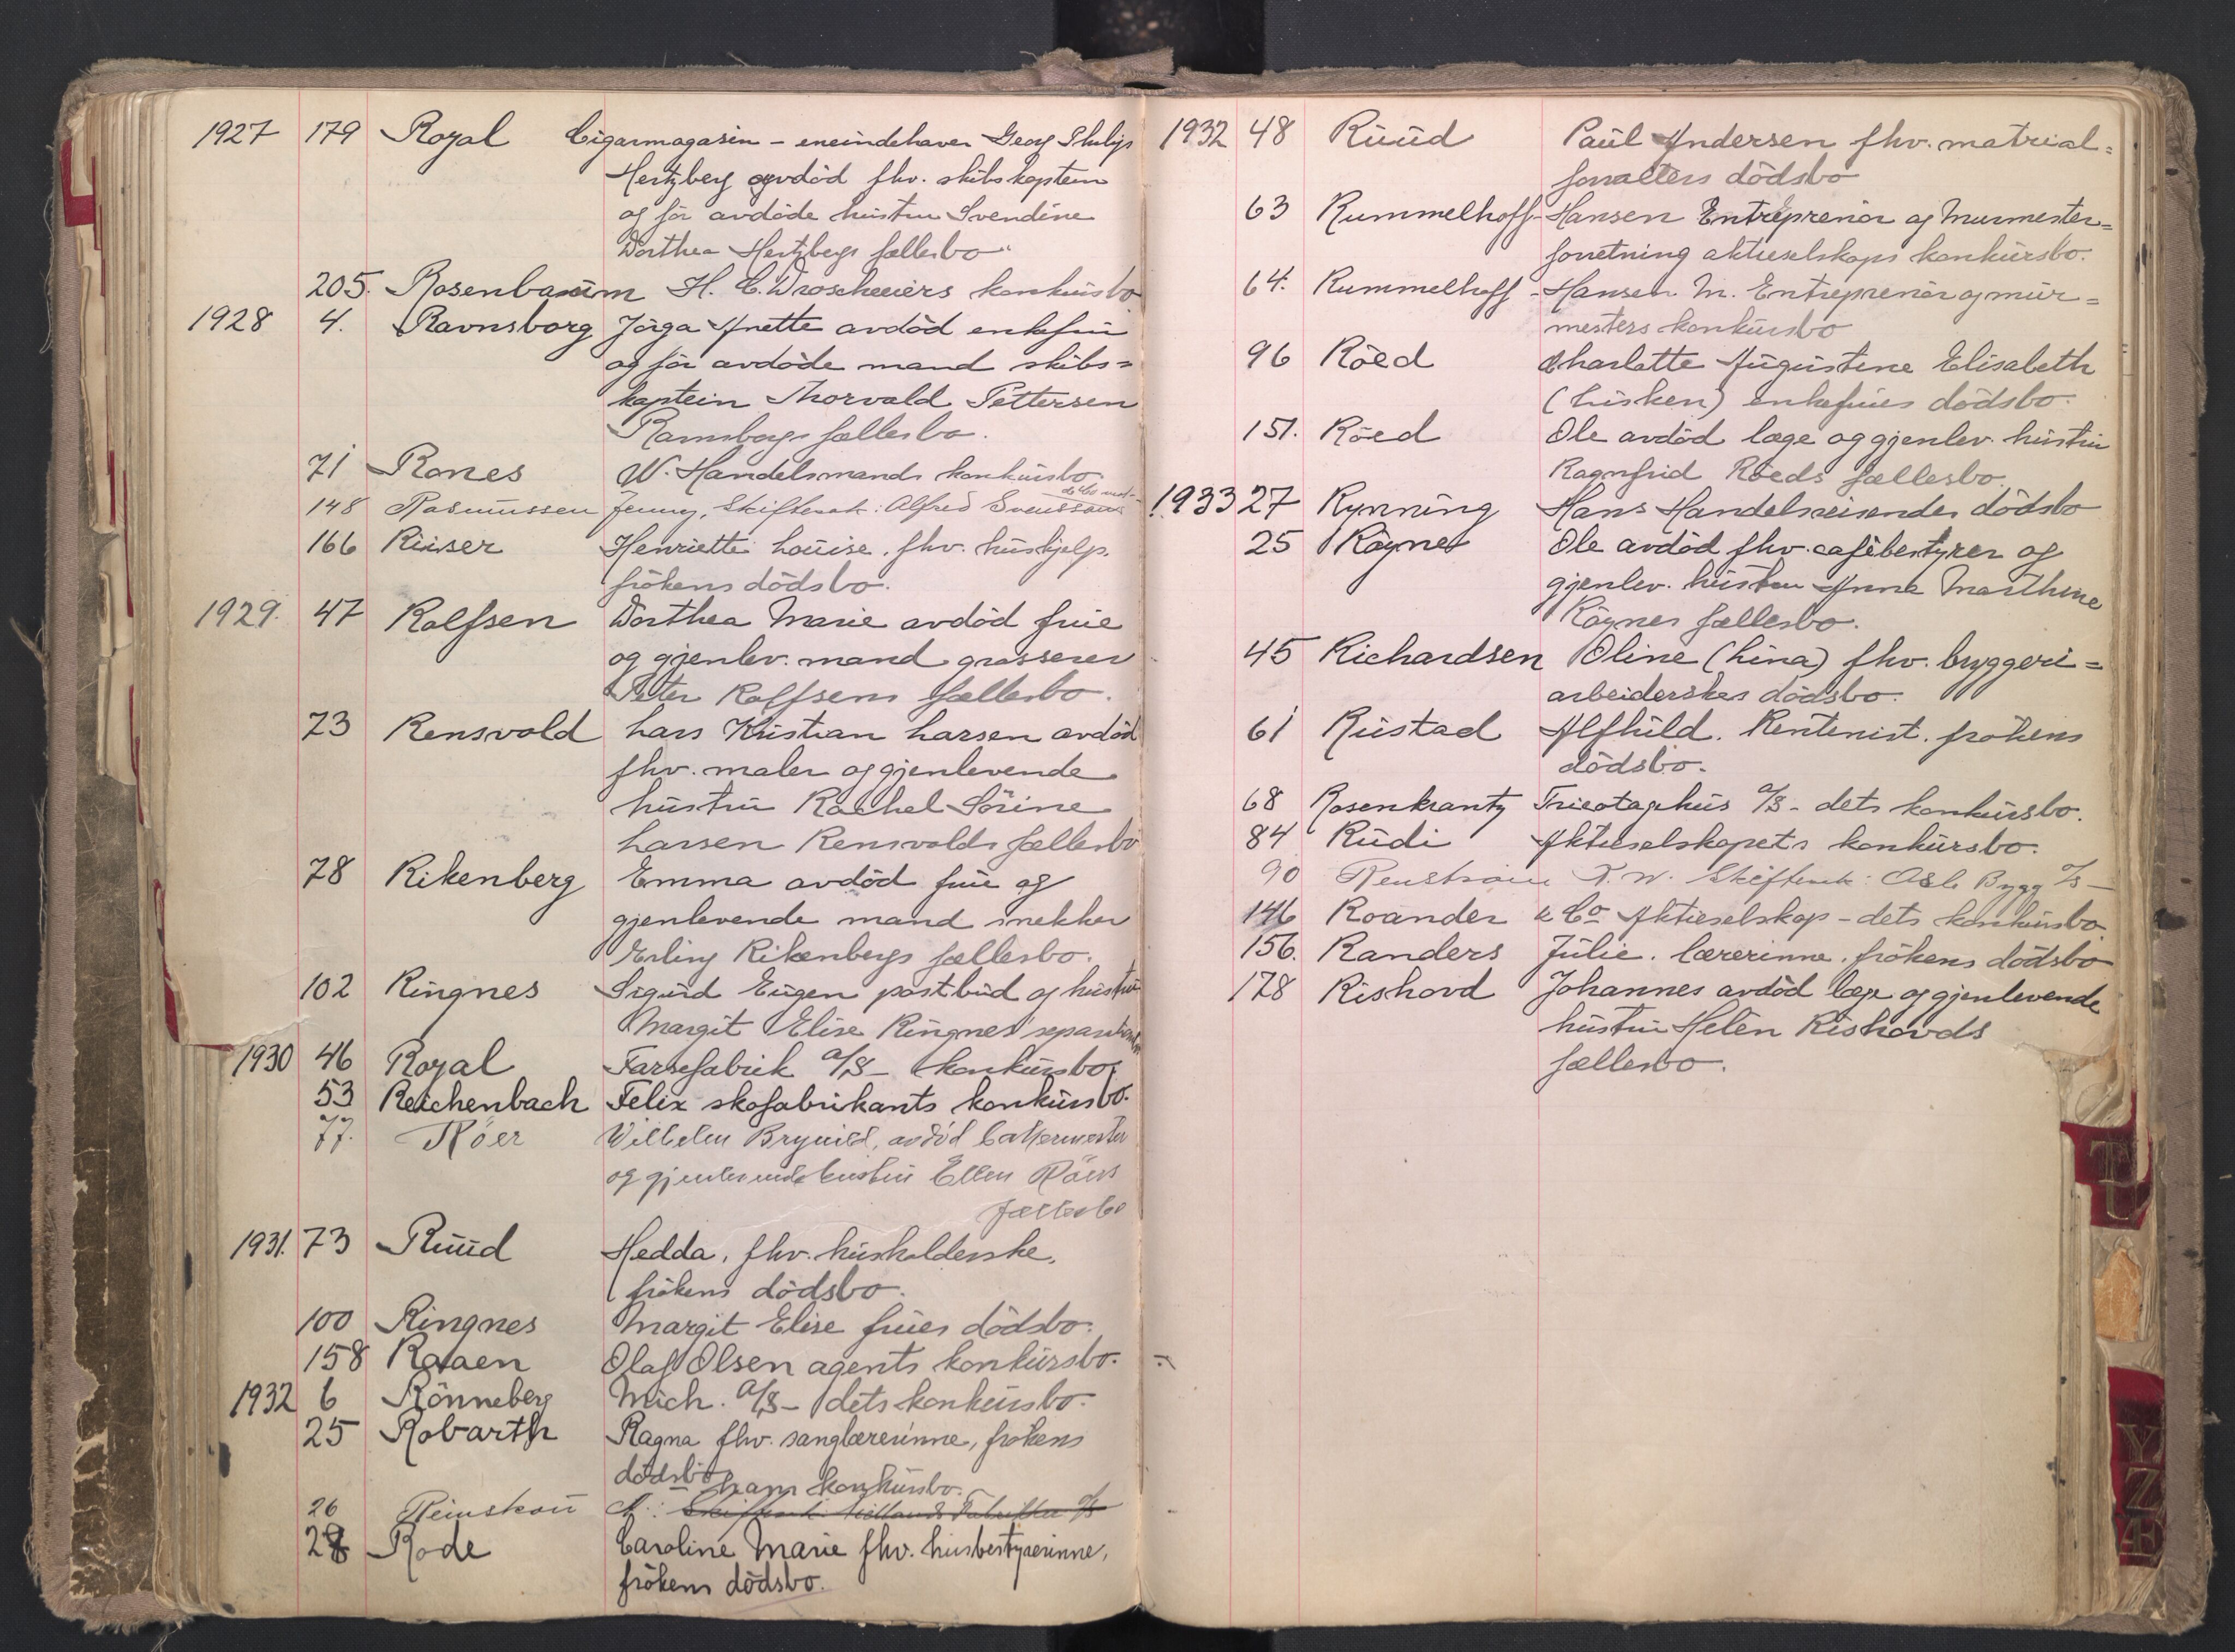 1927 179 Royal Cigarmagasin - eneindehaver Georg Philip
Hertzberg avdöd fhv. skibskaptein
og för avdöde hustru Svendine
Dorthea Hertzbergs fællesbo
205. Rosenbaum H. C. konkursbo
1928 4. Ravnsborg Jörga Anette avdöd enkefrue
og för avdöde mand skibs=
kaptein Thorvald Pettersen
Ravnsborgs fællesbo.
71 Rones W. Handelsmands konkursbo
148 Rasmussen Jenny, Skifterek: Alfred Svenssons
166 Riiser Henriette Louise. fhv. hushjelp.
frökens dödsbo.
1929. 47 Rolfsen Dorthea Marie avdöd frue
og gjenlev. mand grosserer
Peter Rolfsens fællesbo.
73 Rensvold Lars Kristian Larsen avdöd
fhv. maler og gjenlevende
hustru Rachel Sörine
Larsen Rensvolds fællesbo
78 Rikenberg Emma avdöd frue og
gjenlevende mand snekker
Erling Rikenbergs fællesbo.
102 Ringnes Sigurd Eugen postbud og hustru
Margit Elise Ringnes'
1930 46 Royal Farsefabrik A/S - konkursbo.
53 Reichenbach Felix skofabrikants konkursbo.
77. Röer Wilhelm Brynild, avdöd
og gjenlevende hustru Ellen Röers
fællesbo
1931. 73 Ruud Hedda, fhv. husholderske,
frökens dödsbo.
100 Ringnes Margit Elise frues dödsbo.
158 Raaen Olaf Olsen agents konkursbo.
1932 6 Rönneberg Mich. A/S - dets konkursbo.
25 Robarth Ragna fhv. sanglærerinne, frökens
dödsbo
hans konkursbo.
26 Reinskou A.:
28 Rode Caroline Marie fhv. husbestyrerinne,
frökens dödsbo.
1932 48 Ruud Paul Andersen fhv. matrial=
forvalters dödsbo
63 Rummelhoff- Hansen Entreprenör og Murmester=
forretning aktieselskaps konkursbo.
64. Rummelhoff - Hansen M. Entreprenör og mur=
mesters konkursbo
96 Röed Charlotte Augustine Elisabeth
(Lisken) enkefrues dödsbo.
151. Röed Ole avdöd læge og gjenlev. hustru
Ragnfrid Röeds fællesbo.
1933 27 Rynning Hans Handelsreisendes dödsbo
25 Röyne Ole avdöd fhv. cafèbestyrer og
gjenlev. hustru Anne Marthine
Röynes fællesbo.
45 Richardsen Oline (Lina) fhv. bryggeri=
arbeiderskes dödsbo.
61 Rustad Alfhild. Rentenist. frökens
dödsbo.
68 Rosenkrantz Tricotagehus A/S - dets konkursbo.
84 Rudi Aktieselskapets konkursbo.
90 Renström Skifterek: Oslo Bygg A/S -
146 Roander & Co Aktieselskap - dets konkursbo
156. Randers Julie. lærerinne. frökens dödsbo
178 Rishovd Johannes avdöd læge og gjenlevende
hustru Helèn Rishovds
fællesbo.
TU
YZ
Æ